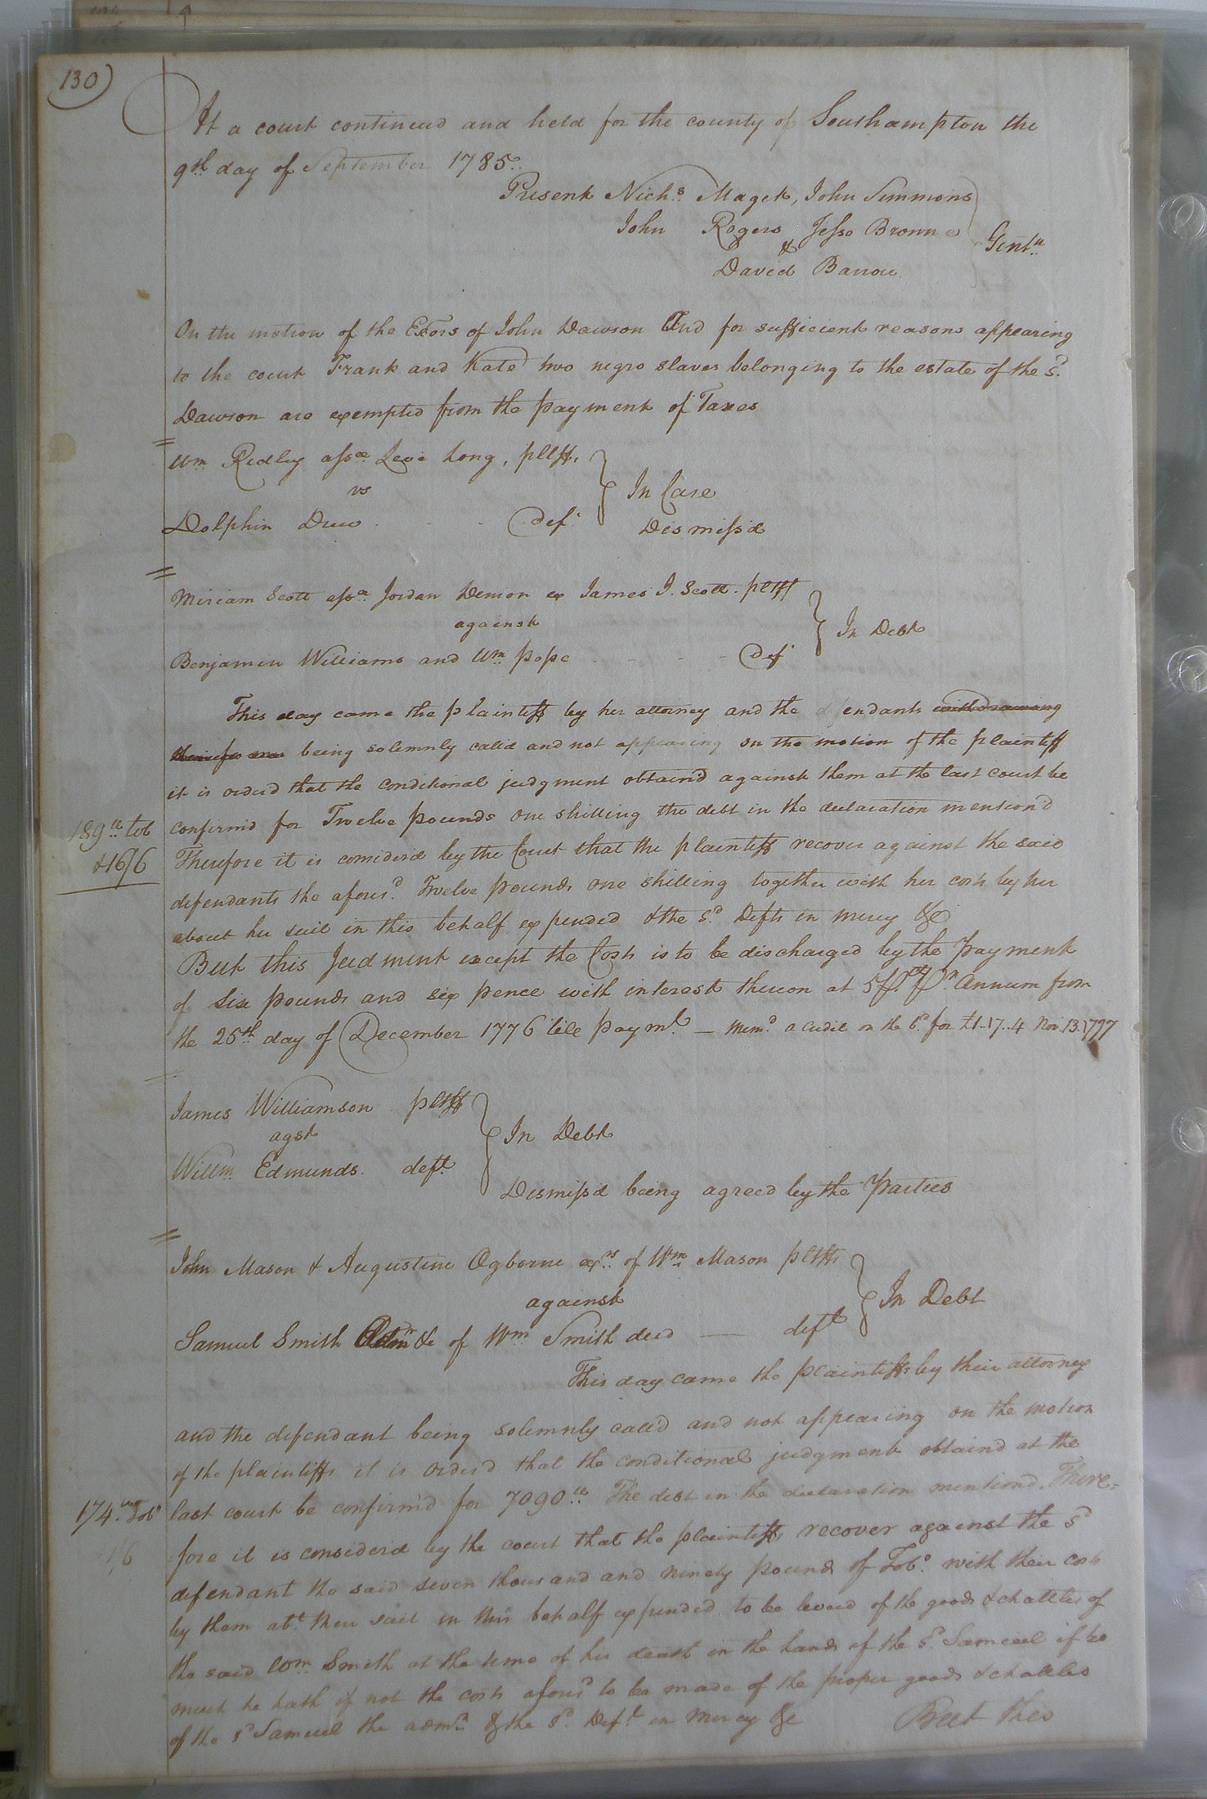 130
At a court continued and held for the county of Southampton the
9th day of September 1785.
Present Nichs. Maget, John Simmons
John Rogers Jesse Browne
&
David Barrow
Gentn.
On the motion of the Exors of John Dawson And for sufficient reasons appearing
to the court Frank and Kate two negro slaves belonging to the estate of the sd.
Dawson are exempted from the payment of Taxes
Wm Ridley assee. Levi Long, pltff.
vs
Dolphin Drew Def.
In Case
Dismissd
Miriam Scott assee. Jordan Denson ex James J. Scott. pltff
against
Benjamin Williams and Wm. Pope Def.
In Debt
This day came the plaintiff by her attorney and the defendants withdrawing
being solemnly calld and not appearing on the motion of the plaintiff
it is orderd that the conditional judgment obtaind against them at the last court be
confirmd for Twelve pounds one shilling the debt in the declaration mentiond
189lb. tob
&16/6
Therefore it is considerd by the Court that the plaintiff recover against the said
defendants the aforesd. Twelve pounds one shilling together with her costs by her
about her suit in this behalf expended & the sd. Defts in mercy &c
But this Judment except the Costs is to be discharged by the payment
of Six pounds and six pence with interest thereon at 5 pCt pr. Annum from
the 25th day of December 1776 till paymt. — Memd. a credit on the bd. for £1..17..4 Nov. 13. 1777
James Williamson pltff
agst
Willm. Edmunds deft.
In Debt
Dismissd being agreed by the Parties
John Mason & Augustine Ogborne exrs. of Wm. Mason pltffs
against
Samuel Smith Adm &c of Wm Smith decd — deft
In Debt
This day came the plaintiffs by their attorney
and the defendant being solemnly calld and not appearing on the motion
of the plaintiffs it is orderd that the conditional judgment obtaind at the
last court be confirmd for 7090lb. The debt in the declaration mentiond. There-
174lb. Tobo
fore it is considerd by the court that the plaintiffs recover against the sd
defendant the said seven thousand and ninety pounds of Tobo. with their costs
by them abt. their suit in this behalf expended to be levied of the goods & chattles of
the said Wm. Smith at the time of his death in the hands of the sd. Samuel if so
much he hath if not the costs aforesd to be made of the proper goods & chattles
of the sd Samuel the admr. & the sd. Deft. in Mercy &c But this